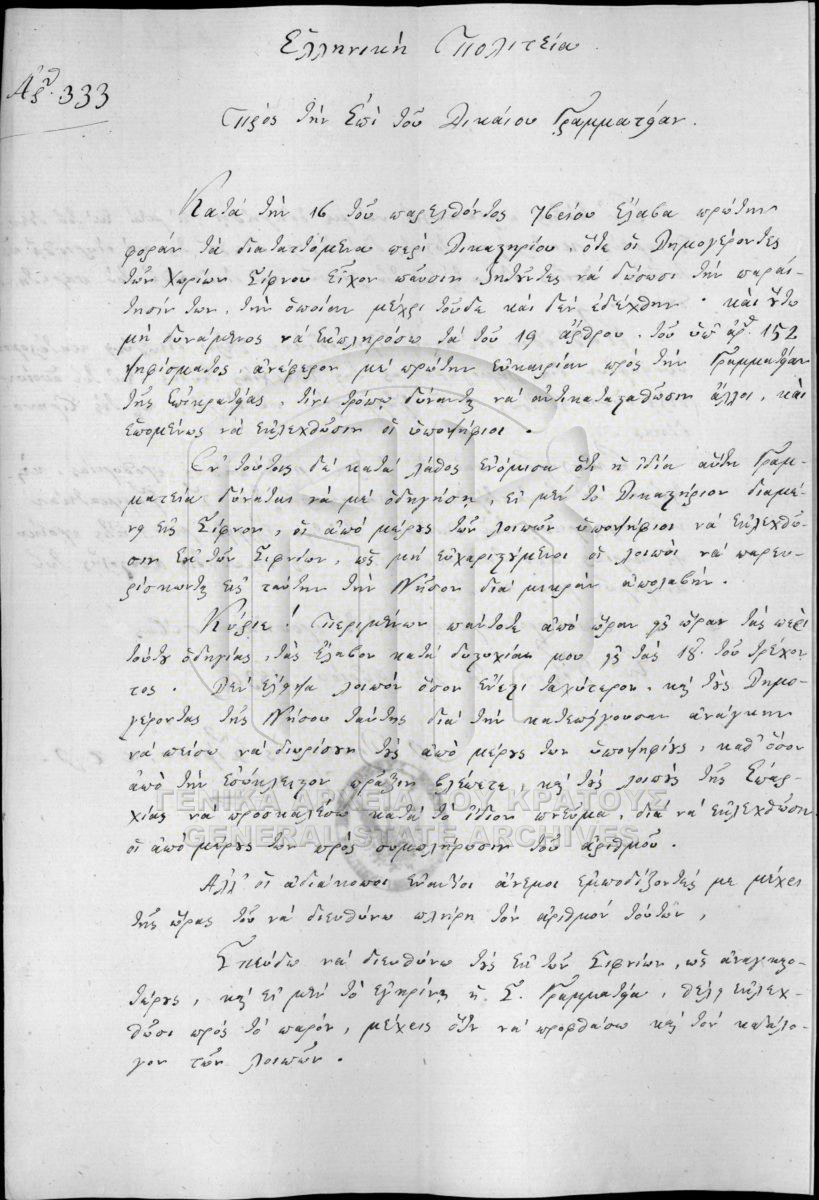 Ἑλληνικὴ Πολιτεία
Ἀρ. 333
Πρὸς τὴν Ἐπὶ τοῦ Δικαίου Γραμματείαν.
Κατὰ τὴν 16 τοῦ παρελθόντος 7βρίου ἔλαβα πρώτην
φορὰν τὰ διαταττόμενα περὶ Δικαστηρίου, ὅτε οἱ Δημογέροντες
τῶν Χωρίων Σίφνου εἶχον παύσῃ ζητοῦντες νὰ δώσωσι τὴν παραί-
τησίν των, τὴν ὁποίαν μέχρι τοῦδε καὶ δὲν ἐδέχθην· καὶ οὕτω
μὴ δυνάμενος νὰ ἐκπληρώσω τὰ τοῦ 19 ἄρθρου, τοῦ ὑπ' ἀρ. 152
ψηφίσματος, ἀνέφερον μὲ πρώτην εὐκαιρίαν πρὸς τὴν Γραμματείαν
τῆς Ἐπικρατείας, τίνι τρόπῳ δύνανται νὰ ἀντικατασταθῶσιν ἄλλοι, καὶ
ἑπομένως νὰ ἐκλεχθῶσιν οἱ ὑποψήφιοι.
Ἐν τούτοις δὲ κατὰ λάθος ἐνόμισα ὅτι ἡ ἰδία αὕτη Γραμ-
ματεία δύναται νὰ μὲ ὁδηγήσῃ, εἰ μὲν τὸ Δικαστήριον διαμέ-
νῃ εἰς Σίφνον, οἱ ἀπὸ μέρους τῶν λοιπῶν ὑποψήφιοι νὰ ἐκλεχθῶ-
σιν ἐκ τῶν Σιφνίων, ὡς μὴ εὐχαριστούμενοι οἱ λοιποὶ νὰ παρευ-
ρίσκωνται εἰς ταύτην τὴν Νῆσον διὰ μικρὰν ἀπολαβήν.
Κύριε! Περιμένων πάντοτε ἀπὸ ὥραν εἰς ὥραν τὰς περὶ
τούτου ὁδηγίας, τὰς ἔλαβον κατὰ δυστυχίαν μου εἰς τὰς 18 τοῦ τρέχον-
τος. Δὲν ἔλειψα λοιπὸν ὅσον ἔνεστι ταχύτερον, καὶ τοὺς Δημο-
γέροντας τῆς Νήσου ταύτης διὰ τὴν κατεπείγουσαν ἀνάγκην
νὰ πείσω νὰ διορίσουν τοὺς ἀπὸ μέρους των ὑποψηφίους, καθ' ὅσον
ἀπὸ τὴν ἐσώκλειστον πρᾶξιν βλέπετε, καὶ τοὺς λοιποὺς τῆς Ἐπαρ-
χίας νὰ προσκαλέσω κατὰ τὸ ἴδιον πνεῦμα, διὰ νὰ ἐκλεχθῶσιν
οἱ ἀπὸ μέρους των πρὸς συμπλήρωσιν τοῦ ἀριθμοῦ.
ΓΕΝΙΚΑ ΑΡΧΕΙΑ ΤΟΥ ΚΡΑΤΟΥΣ
GENERAL STATE ARCHIVES
Ἀλλ' οἱ ἀδιάκοποι ἐναντίοι ἄνεμοι ἐμποδίζοντές με μέχρι
τῆς ὥρας τοῦ νὰ διευθύνω πλήρη τὸν ἀριθμὸν τούτων,
Σπεύδω νὰ διευθύνω τοὺς ἐκ τῶν Σιφνίων, ὡς ἀναγκαιο-
τάρους, καὶ εἰ μὲν τὸ ἐγκρίνῃ ἡ Σ. Γραμματεία, θέλει ἐκλεχ-
θῶσι πρὸς τὸ παρόν, μέχρις ὅτου νὰ προφθάσω καὶ τὸν κατάλο-
γον τῶν λοιπῶν.